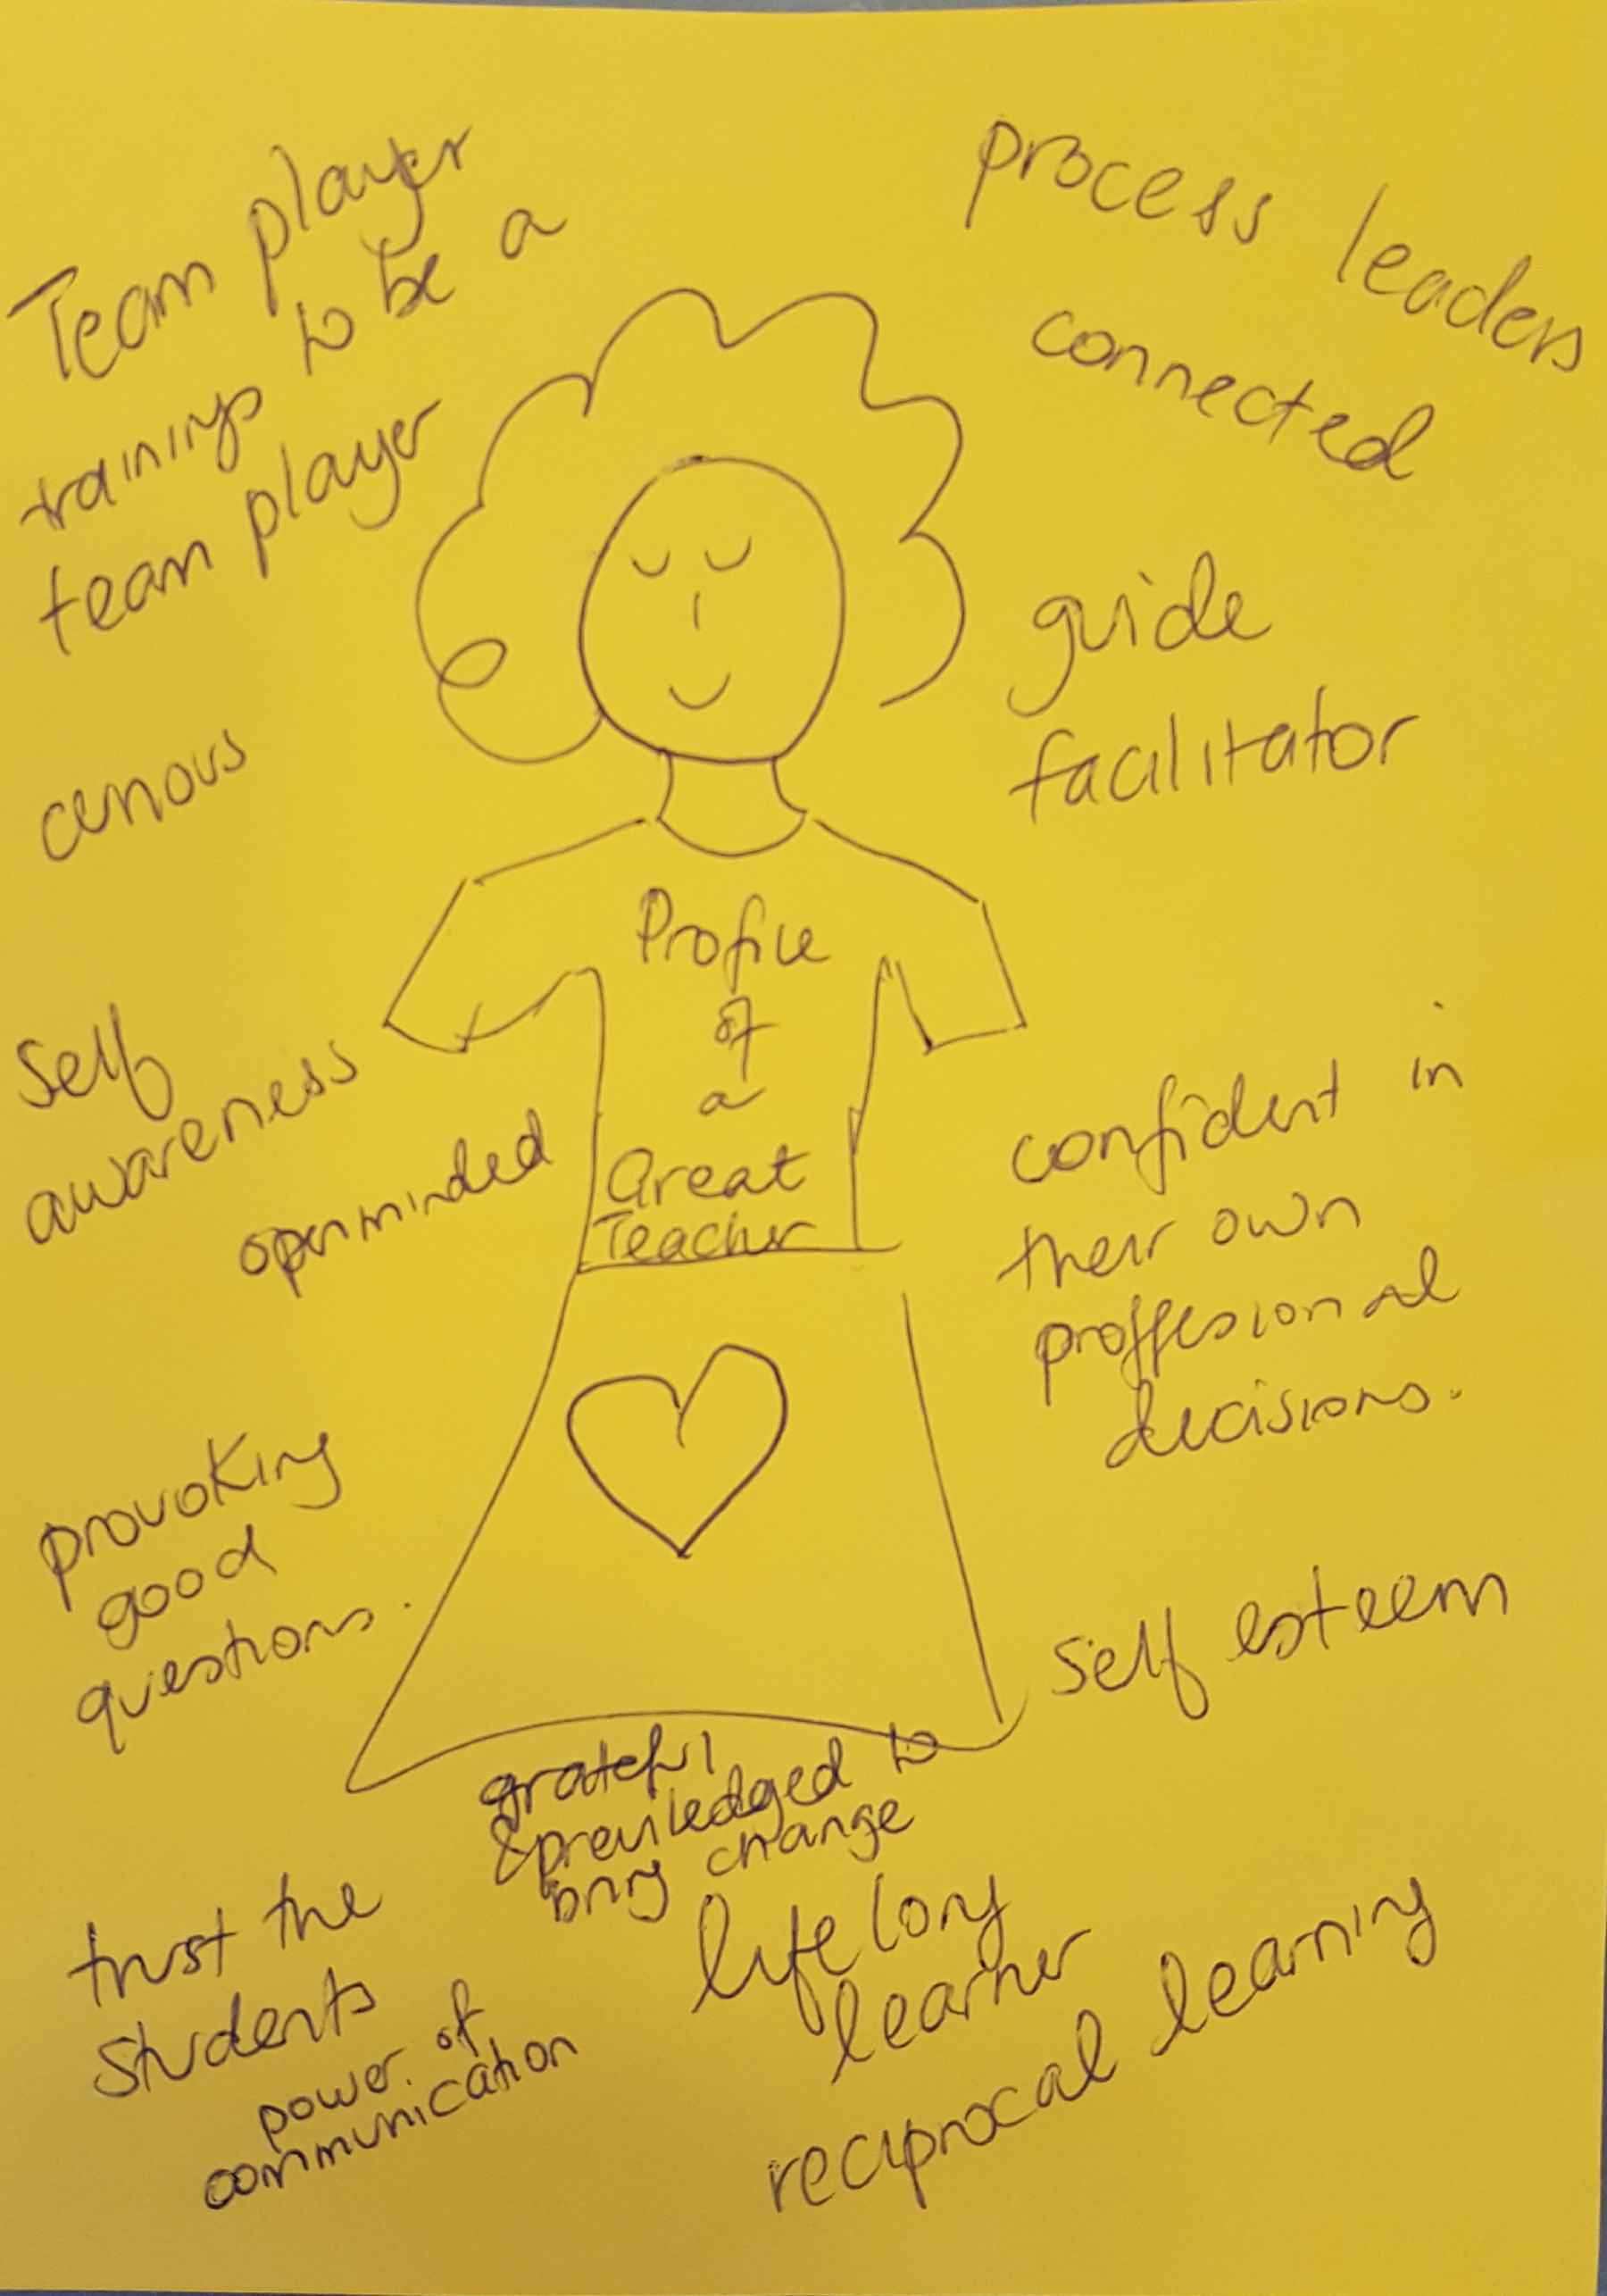 Team player
trainings to be a
team player
process leaders
connected
guide
facilitator
curious
Profile
of
a
Great
Teacher
Self
awareness
openminded
confident in
their own
proffesional
decisions.
provoking
good
questions.
self esteem
grateful
& previledged to
bring change
trust the
students
power of
communication
life long
learner
reciprocal learning